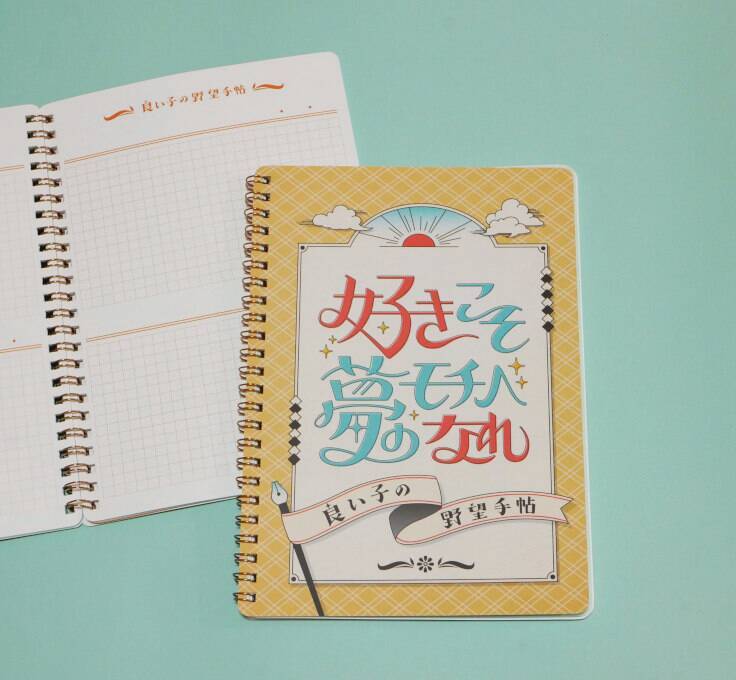 良い子の野望手帖
好きこそ
夢のモチベ
なれ
良い子の
野望手帖